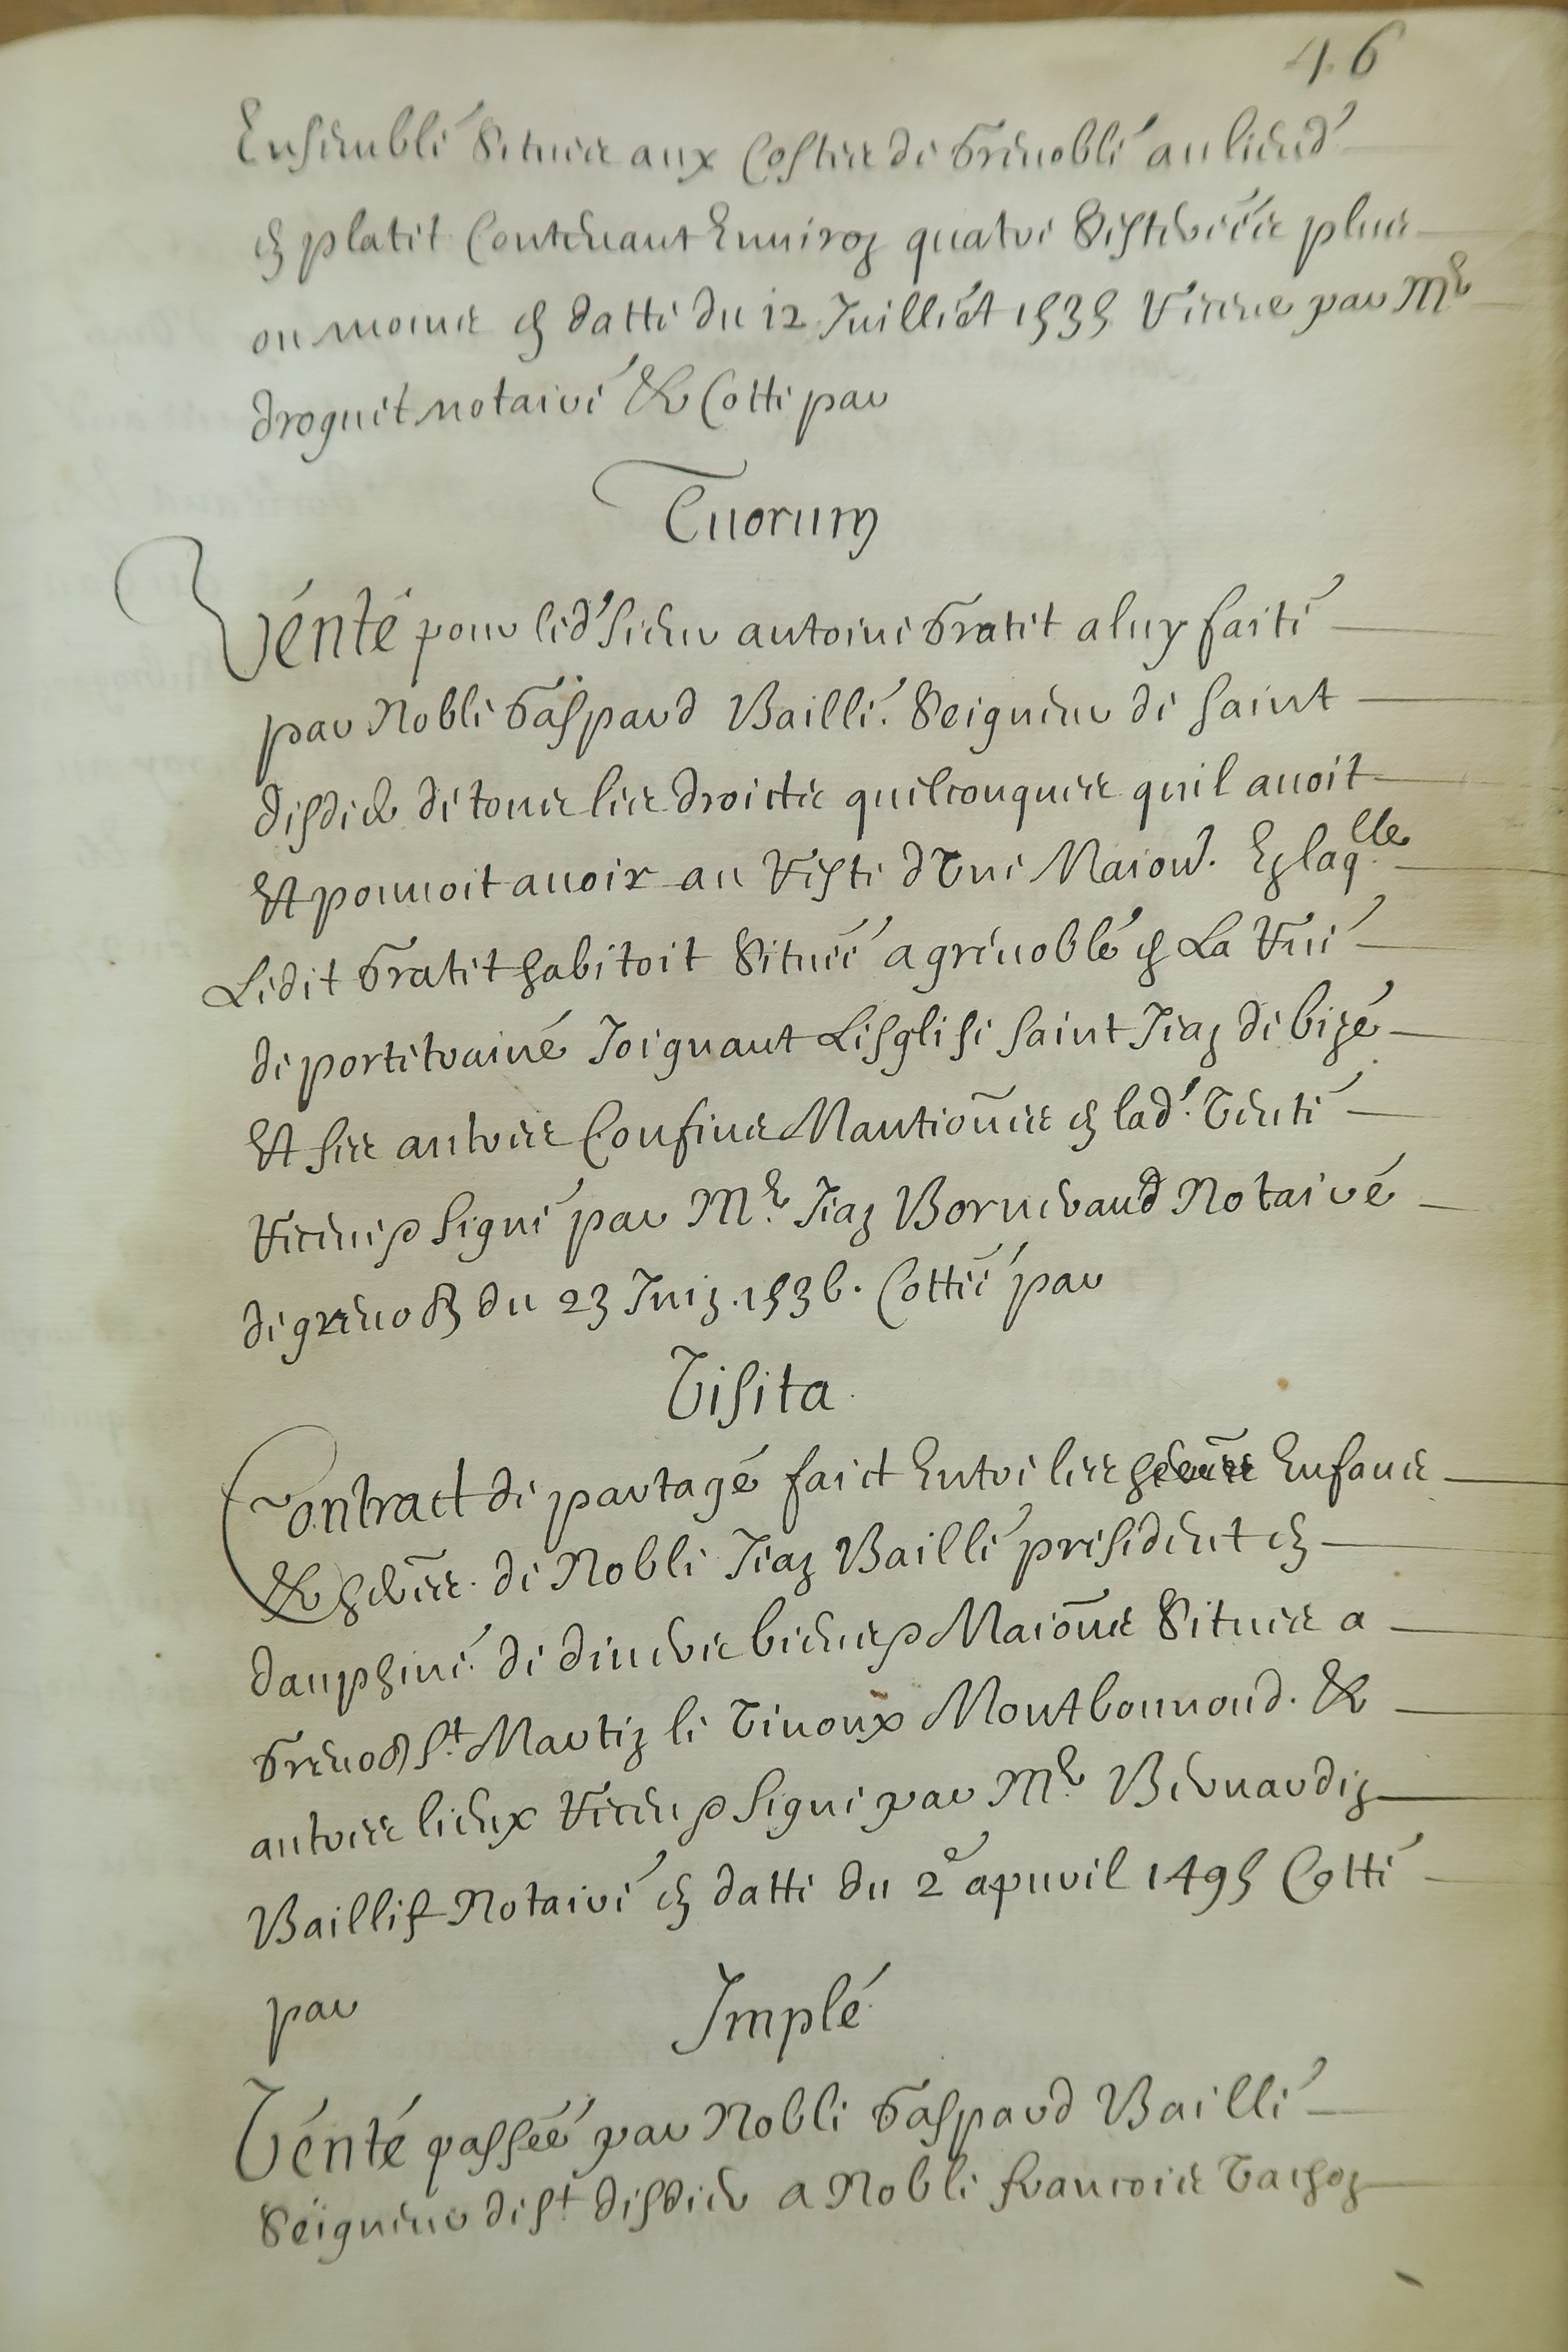 46
Ensemble Situes aux Costes de Grenoble au lieud'
en platet Contenant Enuiron quatre Sesterées plus
ou moins en datte du 12 Juillet 1535 Receue par Me
droguet notaire & Cotte par
Tuorum
Vente pour led' sieur antoine Gratet a luy faite
par Noble Gaspard Baille. Seigneur de saint
disdier de tous les droictz quelconques quil auoit
Et pouuoit auoir au Reste dVne Maison. En laqlle
Ledit Gratet habitoit Située a grenoble en La Rue
de portetraine Joignant Lesglise saint Jean de bize
Et ses autres Confins Mantiones en lad'. Vente
Receue & signe par Me. Jean Borneraud Notaire
de grenob du 23 Juin .1536. Cottée par
Visita
Contract de partage faict Entre les Enfans
& heres. de Noble Jean Baille president en
dauphiné. de diuers biens & Maisons Situes a
Grenob St. Martin le Vinoux Montbonnoud. &
autres lieux Receu & signe par Me. Bernardin
Baillif Notaire en datte du 2e apuril 1495 Cotté
par
Imple
Vente passée par Noble Gaspard Baille
Seigneur de st disdier a Noble francois Vachon